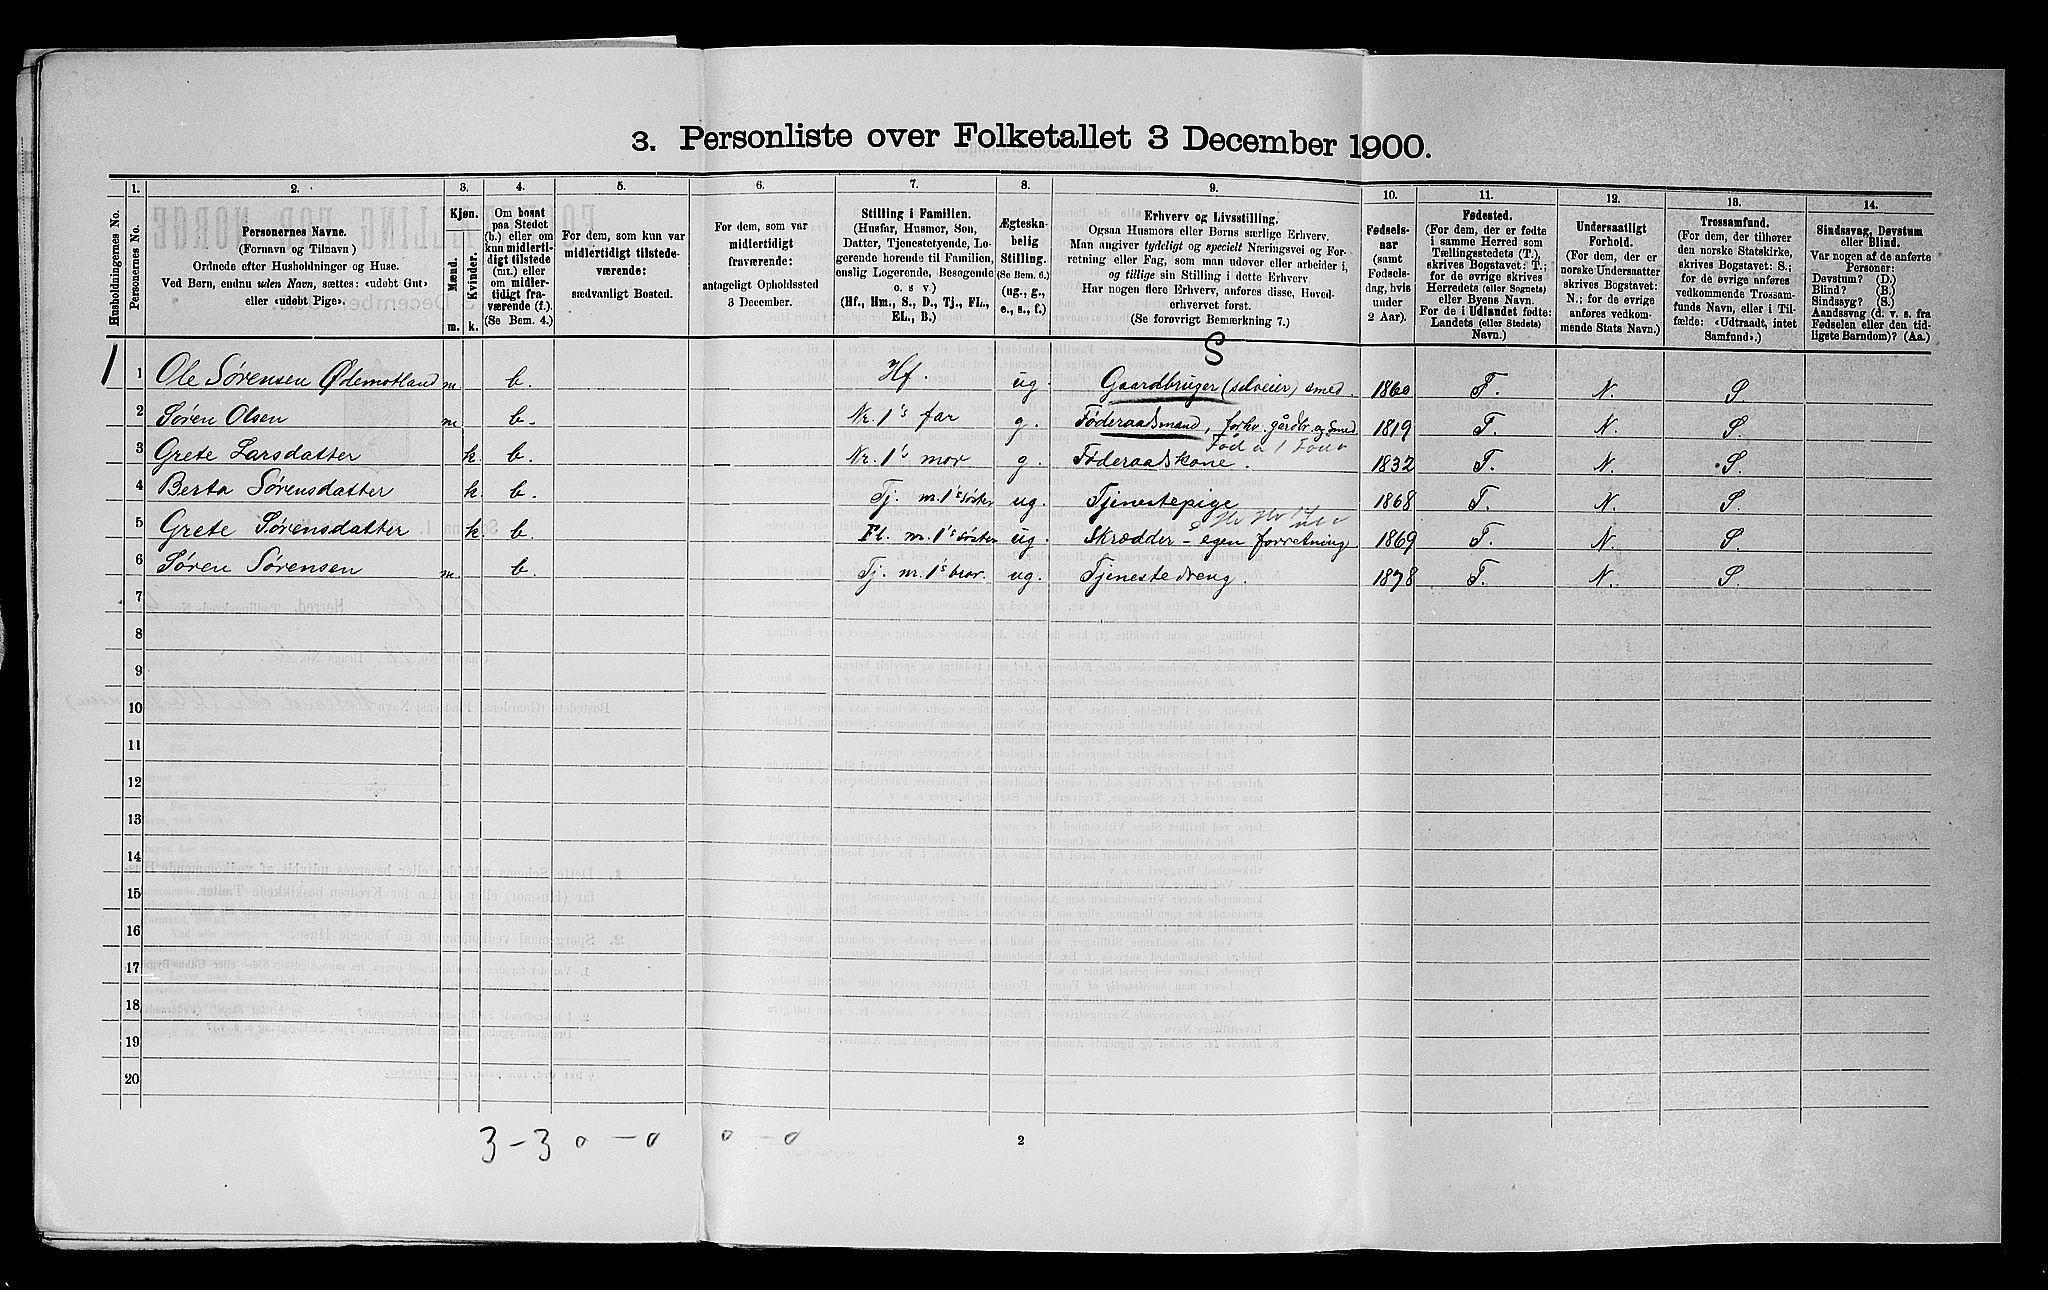 3. Personliste over Folketallet 3 December 1900.
Husholdningernes No.
1.
Personernes No.
2.
Personernes Navne.
(Fornavn og Tilnavn)
Ordnede efter Husholdninger og Huse.
Ved Børn, endnu uden Navn, sættes: «udøbt Gut»
eller «udøbt Pige».
3.
Kjøn.
Mænd.
Kvinder.
m. k.
4.
Om bosat
paa Stedet
(b.) eller om
kun midlerti-
digt tilstede
(mt.) eller
om midler-
tidigt fra-
værende (f.).
(Se Bem. 4.)
5.
For dem, som kun var
midlertidigt tilstede-
værende:
sædvanligt Bosted.
6.
For dem, som var
midlertidigt
fraværende:
antageligt Opholdssted
3 December.
7.
Stilling i Familien.
(Husfar, Husmor, Søn,
Datter, Tjenestetyende, Lo-
gerende hørende til Familien,
enslig Logerende, Besøgende
o. s v.)
(Hf., Hm., S., D., Tj., FL.,
EL., B.)
8.
Ægteska-
belig
Stilling.
(Se Bem. 6.)
(ug., g.,
e., s., f.)
9.
Erhverv og Livsstilling.
Ogsaa Husmors eller Børns særlige Erhverv.
Man angiver tydeligt og specielt Næringsvei og For-
retning eller Fag, som man udøver eller arbeider i,
og tillige sin Stilling i dette Erhverv.
Har nogen flere Erhverv, anføres disse, Hoved-
erhvervet først.
(Se forøvrigt Bemærkning 7.)
10.
Fødsels-
aar
(samt
Fødsels-
dag, hvis
under
2 Aar).
11.
Fødested.
(For dem, der er fødte
i samme Herred som
Tællingsstedets (T.),
skrives Bogstavet: T.;
for de øvrige skrives
Herredets (eller Sognets)
eller Byens Navn.
For de i Udlandet fødte:
Landets (eller Stedets)
Navn.)
12.
Undersaatligt
Forhold.
(For dem, der er
norske Undersaatter
skrives Bogstavet:
N.; for de øvrige
anføres vedkom-
mende Stats Navn.)
13.
Trossamfund.
(For dem, der tilhører
den norske Statskirke,
skrives Bogstavet: S.;
for de øvrige anføres
vedkommende Trossam-
funds Navn, eller i Til-
fælde: «Udtraadt, intet
Samfund».)
14.
Sindssvag, Døvstum
eller Blind.
Var nogen af de anførte
Personer:
Døvstum? (D.)
Blind? (B.)
Sindssyg? (S.)
Aandssvag (d. v. s. fra
Fødselen eller den tid-
ligste Barndom)? (Aa.)
S
1 1 Ole Sørensen Ødemotland m b. Hf. ug. Gaardbruger (selveier) smed. 1860 T. N. S.
2 Søren Olsen m b. Nr. 1's far g. Føderaadsmand, forhv. gårdbr. og Smed 1819 T. N. S.
3 Grete Larsdatter k b. Nr. 1's mor g. Føderaadskone. 1832 T. N. S.
4 Berta Sørensdatter k b. Tj. nr. 1's søster ug. Tjenestepige 1868 T. N. S.
5 Grete Sørensdatter k b. Fl. nr. 1's søster ug. Skrædder - egen forretning. 1869 T. N. S.
6 Søren Sørensen m b. Tj. nr. 1's bror. ug. Tjenestedreng. 1878 T. N. S.
7
8
9
10
11
12
13
14
15
16
17
18
19
20
3-3 0-0 0-0
2